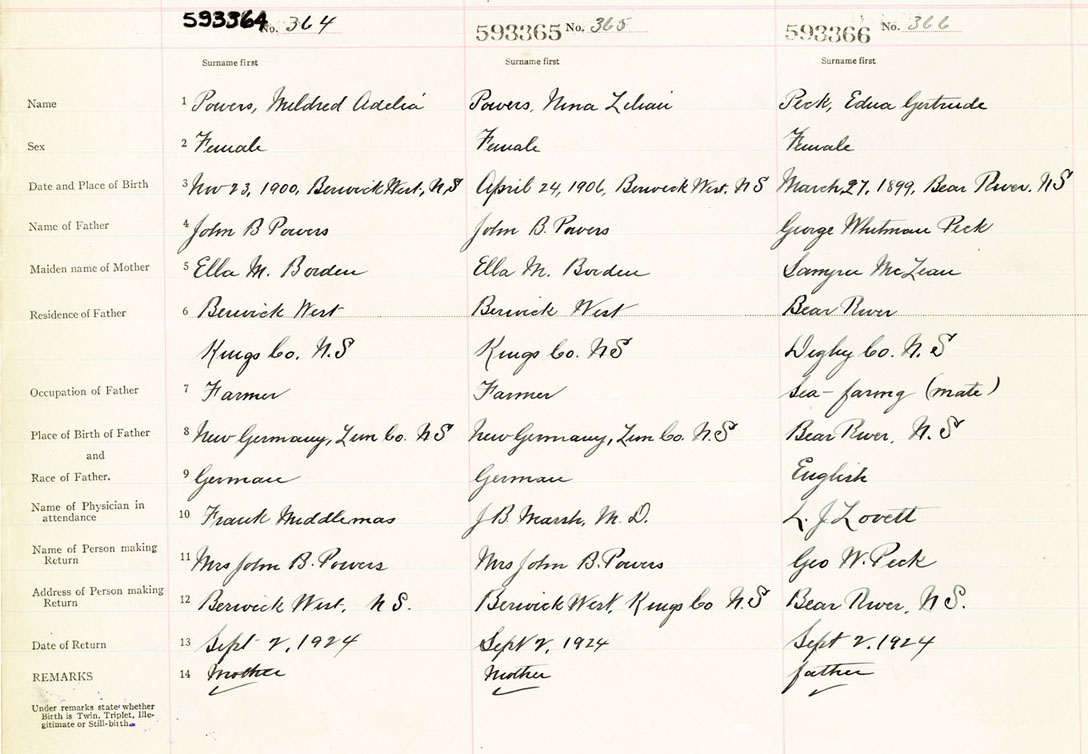 593364 No. 364 593365 No. 365 593366 No. 366
Surname first Surname first Surname first
Name 1 Powers, Mildred Adelia Powers, Nina Lilian Peck, Edna Gertrude
Sex 2 Female Female Female
Date and Place of Birth 3 Nov 23, 1900, Berwick West, N.S April 24, 1906, Berwick West, NS March 27, 1899, Bear River, NS
Name of Father 4 John B Powers John B. Powers George Whitman Peck
Maiden name of Mother 5 Ella M. Borden Ella M. Borden McLean
Residence of Father 6 Berwick West Berwick West Bear River
Kings Co. N.S Kings Co. NS Digby Co. N.S
Occupation of Father 7 Farmer Farmer Sea-faring (mate)
Place of Birth of Father 8 New Germany, Lun Co. NS New Germany, Lun Co. N.S Bear River, N.S
and
Race of Father. 9 German German English
Name of Physician in
attendance 10 Frank Middlemas J B Marsh, M. D. L. J Lovett
Name of Person making
Return 11 Mrs John B. Powers Mrs John B. Powers Geo W. Peck
Address of Person making
Return 12 Berwick West, NS. Berwick West, Kings Co NS Bear River, NS.
Date of Return 13 Sept 2, 1924 Sept 2, 1924 Sept 2, 1924
REMARKS 14 Mother Mother father
Under remarks state whether
Birth is Twin, Triplet, Ille-
gitimate or Still-birth.